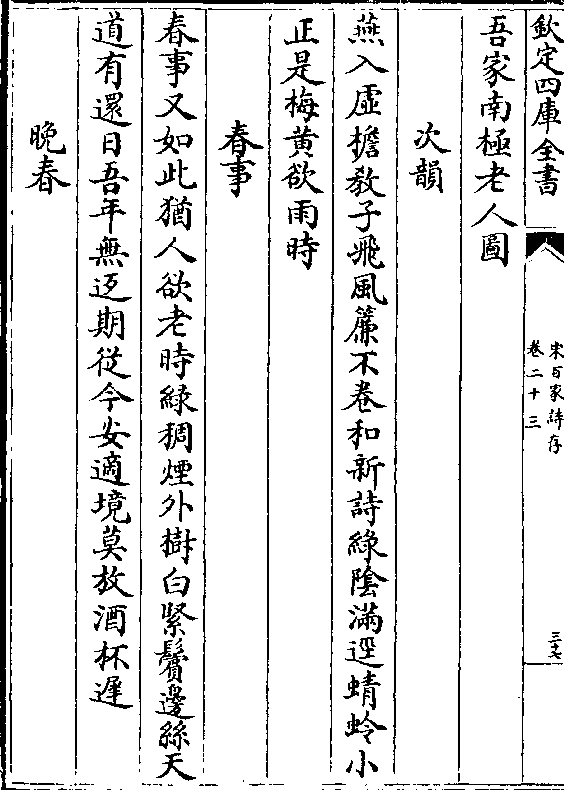 欽定四庫全書
宋百家詩存
卷二十三
三十七
吾家南極老人圖
次韻
燕入虛擔敎子飛風簾不卷和新詩綠陰滿逕蜻蛉小
正是梅黄欲雨時
春事
春事又如此猶人欲老時緑稠煙外樹白緊鬢邊絲天
道有還日吾年無返期從今安適境莫放酒杯遲
晚春